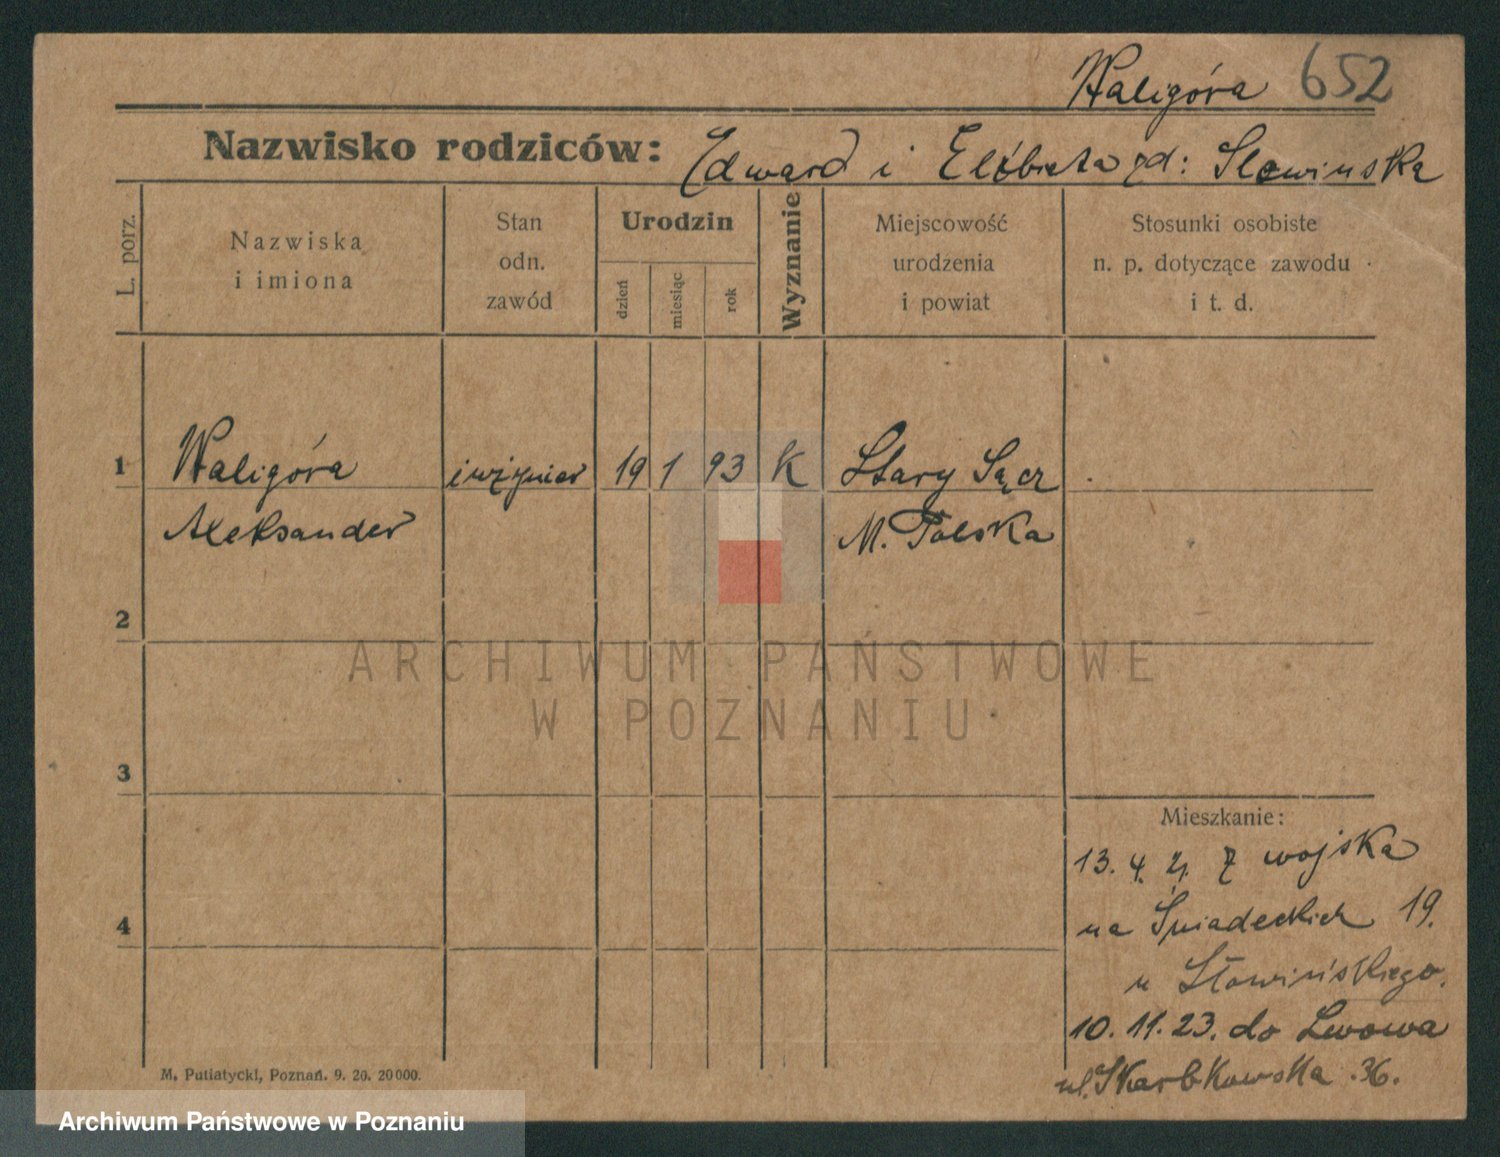 Waligóra 652
Nazwisko rodziców: Edward i Elżbieta zd: Słowińska
L. porz.
Nazwiska
i imiona
Stan
odn.
zawód
Urodzin
dzień
miesiąc
rok
Wyznanie
Miejscowość
urodzenia
i powiat
Stosunki osobiste
n. p. dotyczące zawodu
i t. d.
1 Waligóra inżynier 19 1 93 K Stary Sącz
Aleksander M. Polska
2
3
4
Mieszkanie:
13. 4. 21. Z wojska
na Śniadeckich 19.
u Słowińskiego.
10. 11. 23. do Lwowa
ul. Skarbkowska 36.
M. Putiatycki, Poznań. 9. 20. 20000.
ARCHIWUM PAŃSTWOWE
W POZNANIU
Archiwum Państwowe w Poznaniu